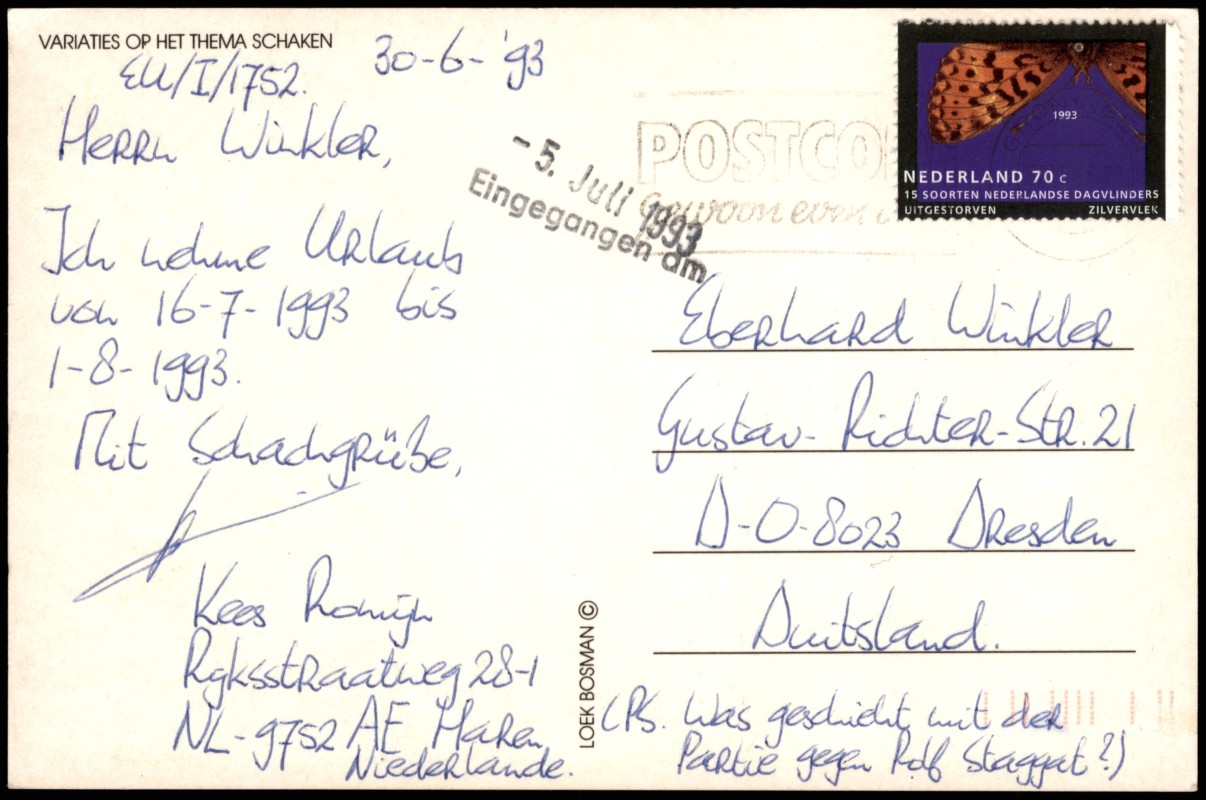 VARIATIES OP HET THEMA SCHAKEN
30-6-'93
EU/I/1752.
Herrn Winkler,
Ich nehme Urlaub
von 16-7-1993 bis
1-8-1993.
Mit Schachgrüße,
Kees Romijn
Rijksstraatweg 28-1
NL-9752 AE Haren
Niederlande.
- 5. Juli 1993
Eingegangen am
POSTCO
Gewoon even
1993
NEDERLAND 70 c
15 SOORTEN NEDERLANDSE DAGVLINDERS
UITGESTORVEN ZILVERVLEK
Eberhard Winkler
Gustav-Richter-Str. 21
D-O-8023 Dresden
Duitsland.
LOEK BOSMAN ©
(PS. Was geschieht mit der
Partie gegen Rolf Staggat?)